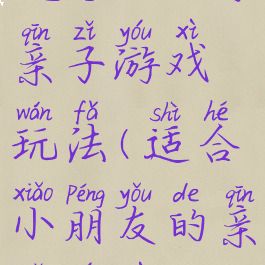 qīn zǐ yóu xì
亲子游戏
wán fǎ shì hé
玩法(适合
xiǎo péng yǒu de qīn
小朋友的亲